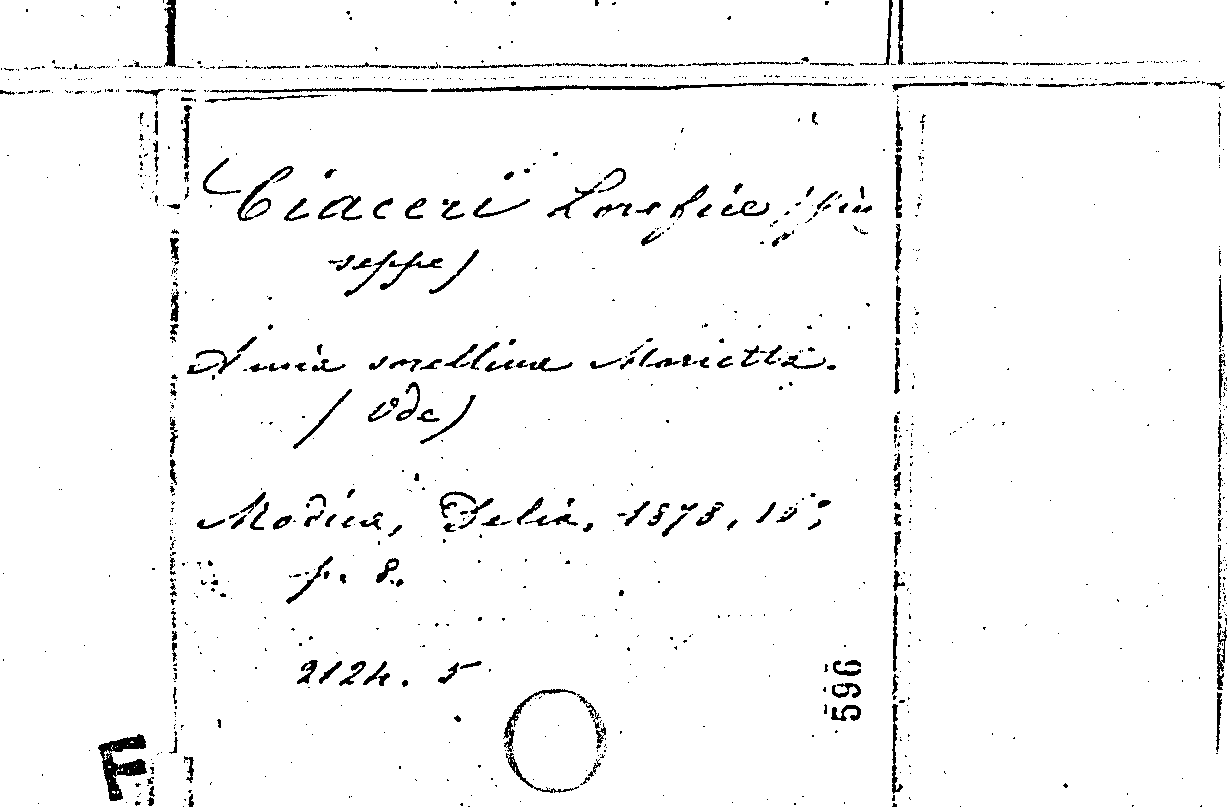 Ciaceri Lorefice (Giu
seppe)
A mia sorellina Marietta.
(Ode)
Modica, Felia, 1878, 16°,
p. 8.
2124. 5
596
F